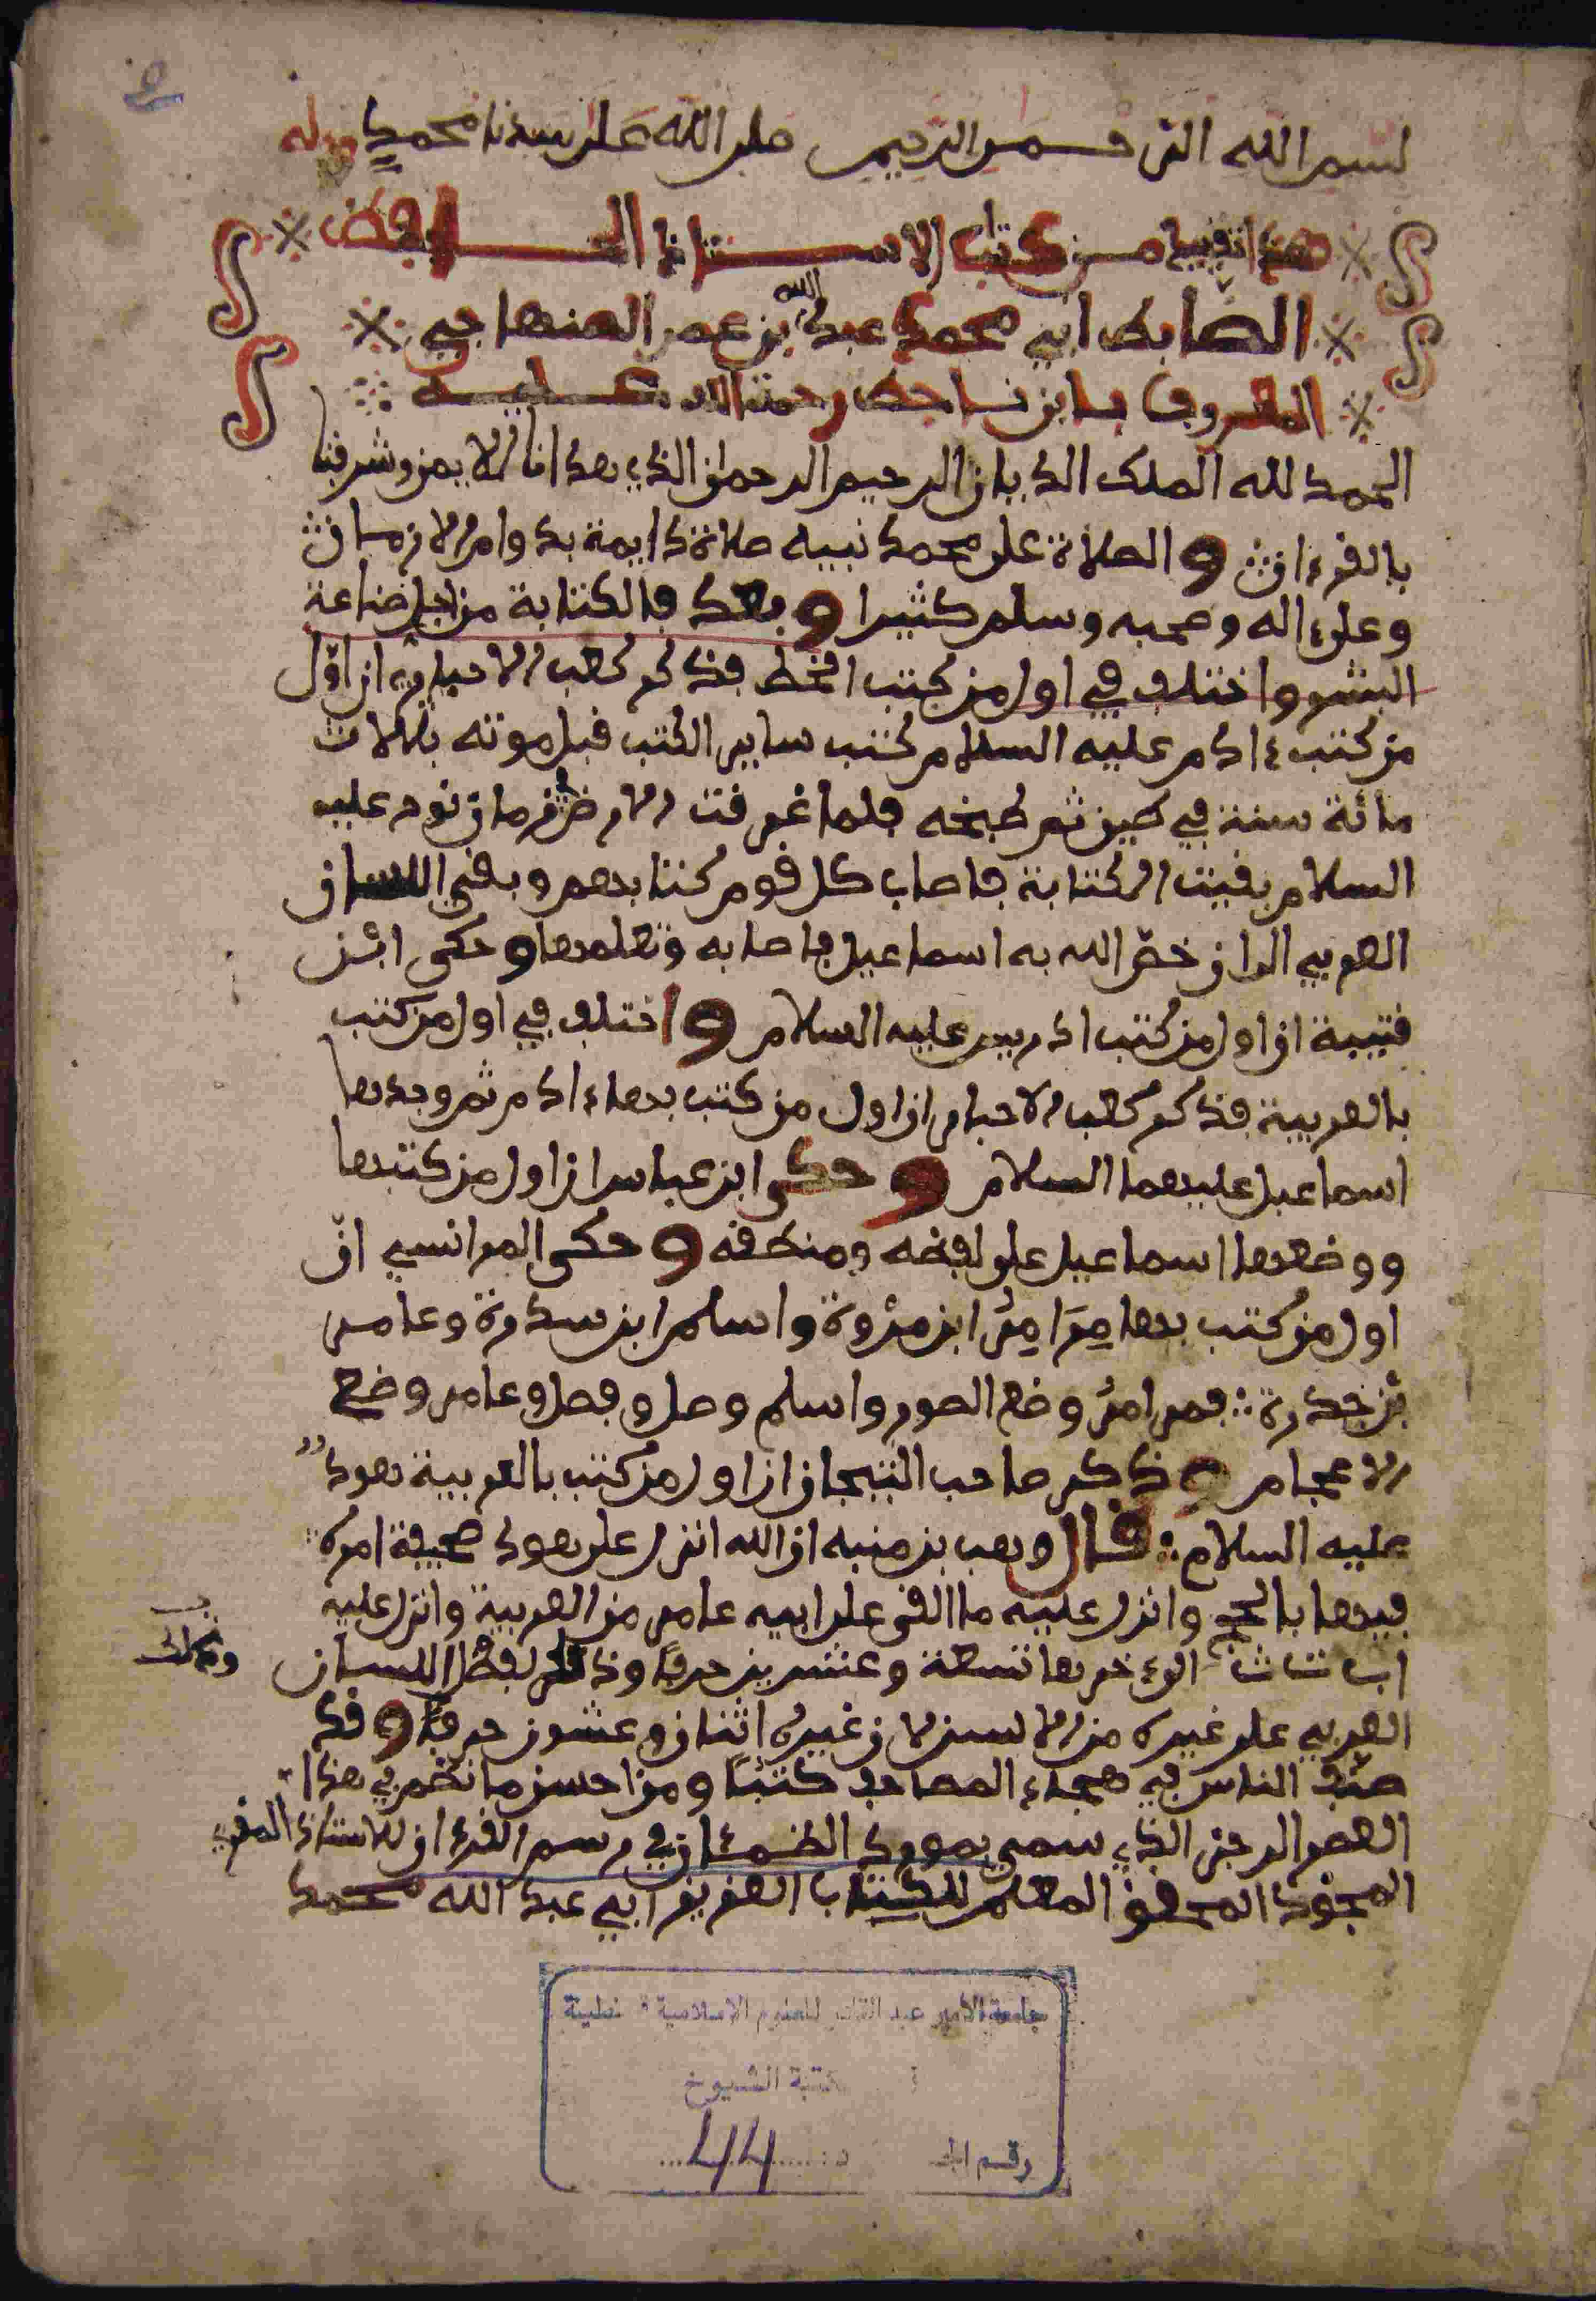 بسم الله الرحمن الرحيم صلى الله على سيدنا محمد وءاله
هذا تقييد من كتاب الاستاذ الحافظ
الضابط ابي محمد عبد الله بن عمر الصنهاجي
المعروف بابن ... رحمة الله عليه
الحمد لله الملك الديان الرحيم الرحمان الذي هدانا للايمن وشرفنا
بالقرءان والصلاة على محمد نبيه صلاة دايمة بدوام الازمان
وعلى ءاله وصحبه وسلم كثيرا وبعد فالكتابة من اجل صناعة
البشر واختلف في اول من كتب الخط فذكر كعب الاحبار ان اول
من كتب ءادم عليه السلام كتب ساير الكتب قبل موته بثلاث
مائة سنة في طين ثم طبخه فلما غرقت الارض في زمان نوح عليه
السلام بقيت الكتابة فاصاب كل قوم كتابهم وبقي اللسان
العربي الى ان خص الله به اسماعيل فاصابه وتعلمها وحكى ابن
قتيبة ان اول من كتب ادريس عليه السلام واختلف في اول من كتب
بالعربية فذكر كعب الاحبار ان اول من كتب بها ءادم ثم وجدها
اسماعيل عليهما السلام وحكى ابن عباس ان اول من كتبها
ووضعها اسماعيل على لفظه ومنطقه وحكى ... ان
اول من كتب بها مرامر ابن مروة واسلم ابن سدرة وعامر
بن جدرة فمرامر وضع الصور واسلم وصل وفصل وعامر وضع
الاعجام وذكر صاحب التيجان ان اول من كتب بالعربية هود
عليه السلام قال وهب بن منبه ان الله انزل على هود صحيفة امره
فيها بالحج وانزل عليه ما القى على ابيه عامر من العربية وانزل عليه
ا ب ت ث الى ءاخرها تسعة وعشرين حرفا وذلك لفظ اللسان
العربي على غيره من الالسن لان غيره اثنان وعشرون حرفا وقد
صنف الناس في هجاء المصاحف كتبا ومن احسن ما نظم في هذا
العصر الرجز الذي سمي بمورد الظمئان في رسم القرءان للاستاذ المقرئ
المجود المحقق المعلم للكتاب العزيز ابي عبد الله محمد
جامعة الأمير عبد القادر للعلوم الإسلامية قسنطينة
مكتبة الشيوخ
44